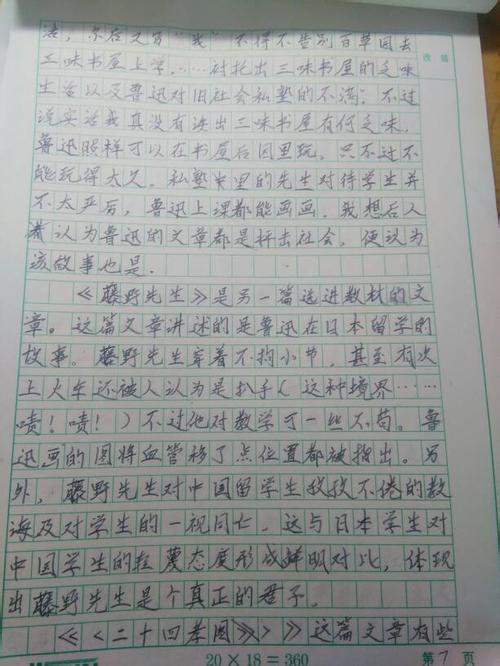 法，尔后又写“我”不得不告别百草园去
三味书屋上学，……对托出三味书屋的乏味
生活以及鲁迅对旧社会私塾的不满；不过
说实话我真没有读出三味书屋有何乏味，
鲁迅照样可以在书屋后园里玩。只不过不
能玩得太久。私塾里的先生对待学生并
不太严厉，鲁迅上课都能画画。我想后人
着认为鲁迅的文章都是抨击社会，便认为
该故事也是.
《藤野先生》是另一篇选进教材的文
章。这篇文章讲述的是鲁迅在日本留学的
故事。藤野先生穿着不拘小节，甚至有次
上火车还被人认为是扒手（这种境界……
啧！啧！）不过他对教学可一丝不苟。鲁
迅画的图将血管移了点位置都被指出。另
外，藤野先生对中国留学生孜孜不倦的教
诲及对学生的一视同仁，这与日本学生对
中国学生的轻蔑态度形成鲜明对比，体现
出藤野先生是个真正的君子。
《《二十四孝图》》这篇文章有些
20×18=360
第 7 页